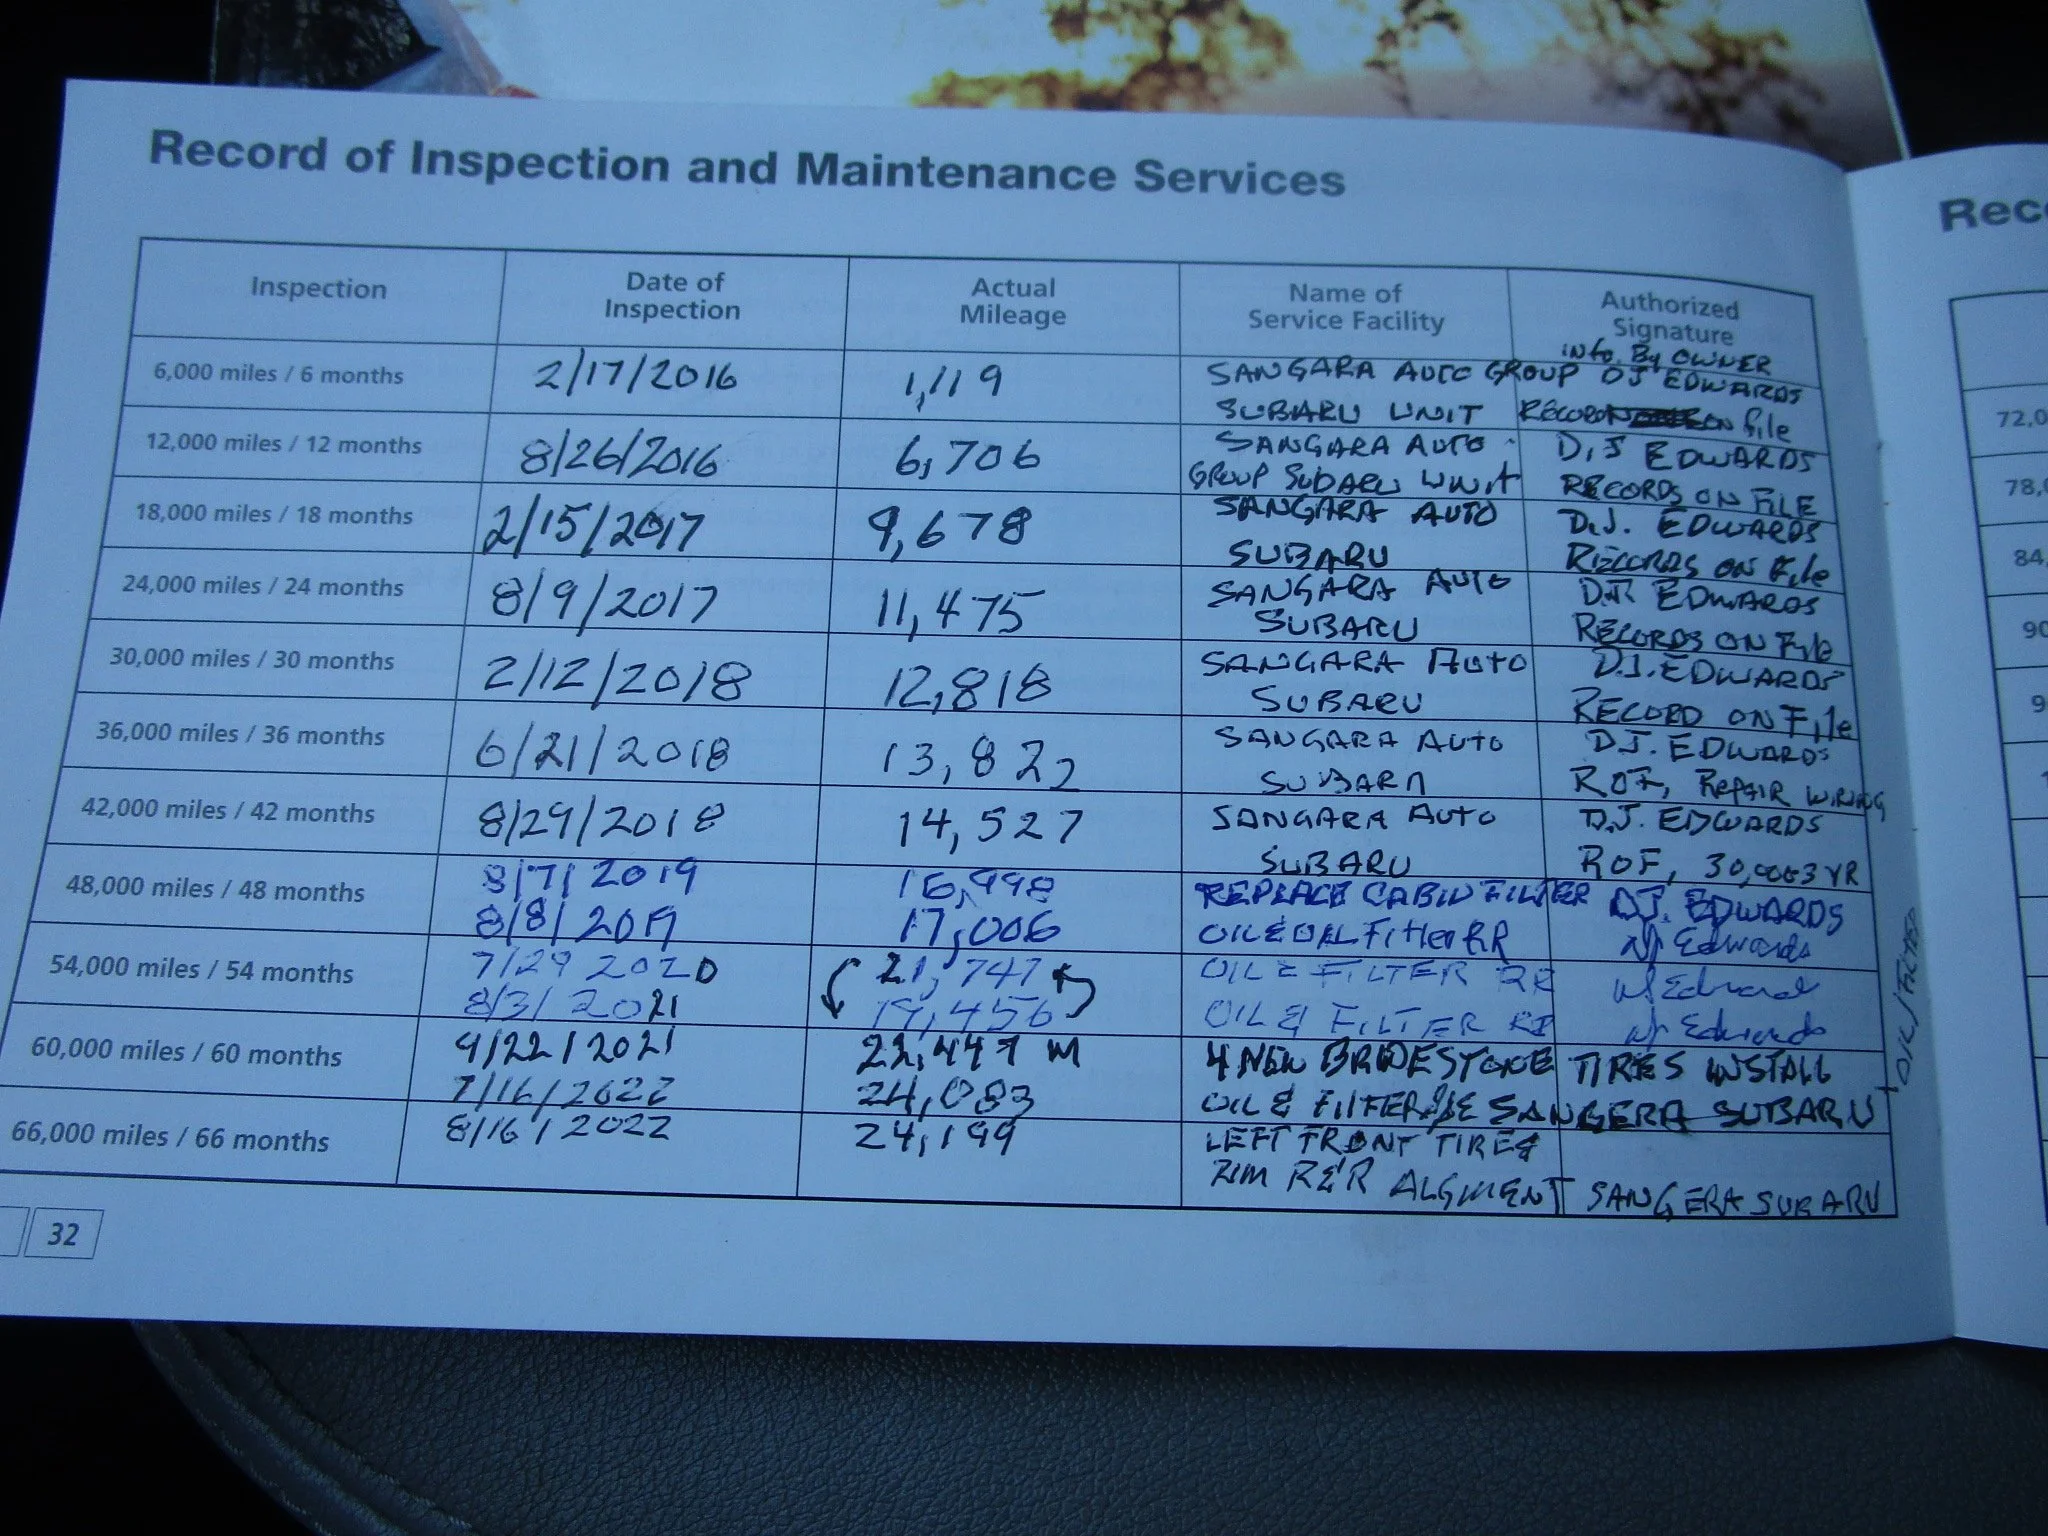 Record of Inspection and Maintenance Services
Rec
Inspection
Date of
Inspection
Actual
Mileage
Name of
Service Facility
Authorized
Signature
6,000 miles / 6 months
2/17/2016
1,119
SANGARA AUTO GROUP
SUBARU UNIT
info. By OWNER
DJ EDWARDS
RECORD ON File
12,000 miles / 12 months
8/26/2016
6,706
SANGARA AUTO
GROUP SUBARU UNIT
D,J EDWARDS
RECORDS ON FILE
18,000 miles / 18 months
2/15/2017
9,678
SANGARA AUTO
SUBARU
D.J. EDWARDS
RECORDS ON File
24,000 miles / 24 months
8/9/2017
11,475
SANGARA AUTO
SUBARU
D.J. EDWARDS
RECORDS ON File
30,000 miles / 30 months
2/12/2018
12,818
SANGARA AUTO
SUBARU
D.J. EDWARDS
RECORD ON FIle
36,000 miles / 36 months
6/21/2018
13,822
SANGARA AUTO
SUBARU
DJ. EDWARDS
ROF, REPAIR WIRING
42,000 miles / 42 months
8/29/2018
14,527
SANGARA AUTO
SUBARU
D.J. EDWARDS
ROF, 30,000 3 YR
48,000 miles / 48 months
8/7/2019
16,998
REPLACE CABIN FILTER
DJ. EDWARDS
8/8/2019
17,006
OIL & OIL FilterRR
Edwards
54,000 miles / 54 months
7/29 2020
21,747
OIL & FILTER RR
8/3/2021
19,456
OIL & FILTER
Edwards
60,000 miles / 60 months
9/22/2021
22,447 M
4 NEW BRIDESTONE TIRES INSTALL
7/16/2022
24,083
OIL & FILTER SANGERA SUBARU
66,000 miles / 66 months
8/16/2022
24,199
LEFT FRONT TIRE &
RIM R&R ALGMENT SANGERA SUBARU
OIL/
32
72,0
78,
84,
90
9